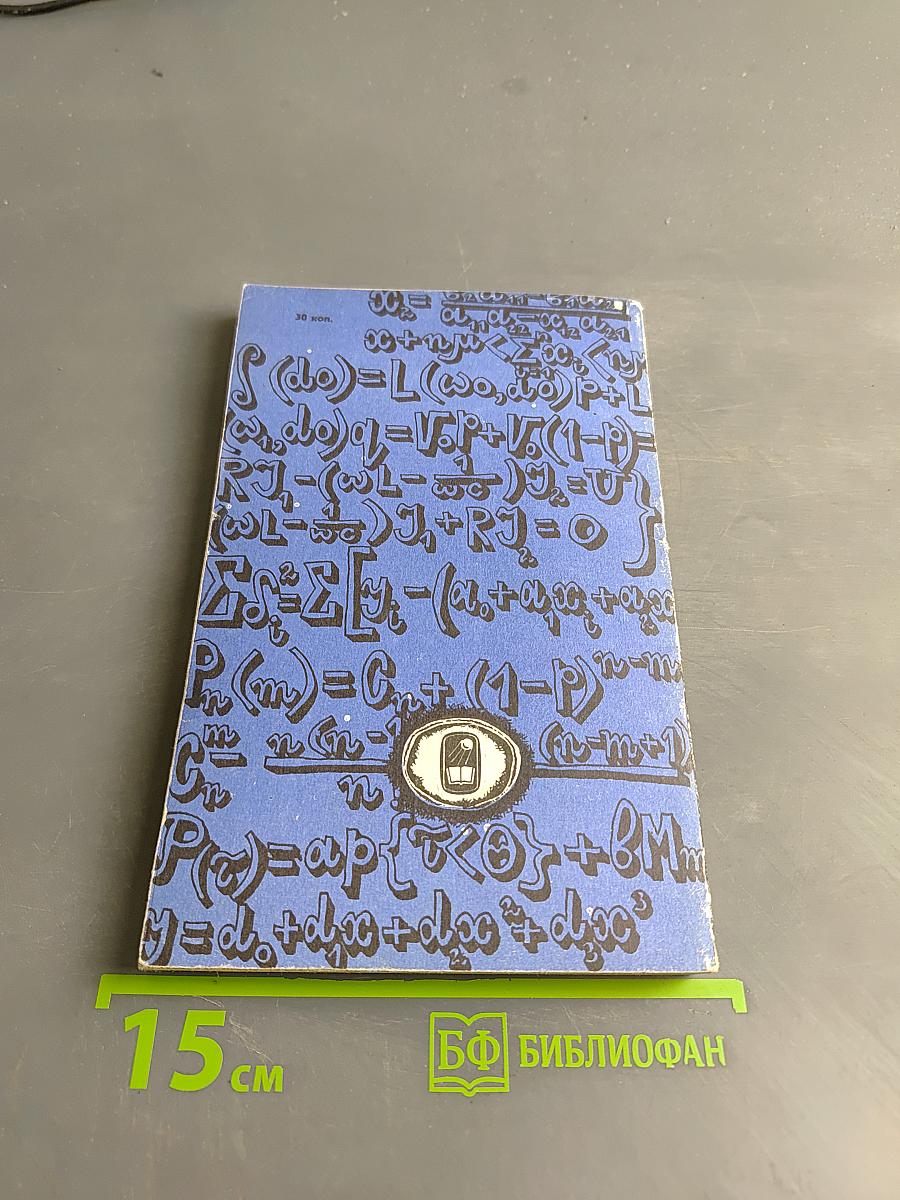 30 коп.
x₂ =
a₁₁ a₂₂ − x₁₂ a₂₁
∫(do) = L(ωo, do)p + L
(ω₁, do)q = V₀p + V₀(1−p) =
RJ₁ − (ωL − 1/ωc)J₂ = U }
(ωL − 1/ωc)J₁ + RJ₂ = 0
Σδᵢ² = Σ[yᵢ − (a₀ + a₁xᵢ + a₂x
Pₙ(m) = Cₙ + (1−p)ⁿ⁻ᵐ
Cₙᵐ = n(n−1 (n−m+1)
n
P(τ) = ap{τ̃<Θ} + вMm
y = d₀ + d₁x + d₂x² + d₃x³
15 см
БФ БИБЛИОФАН